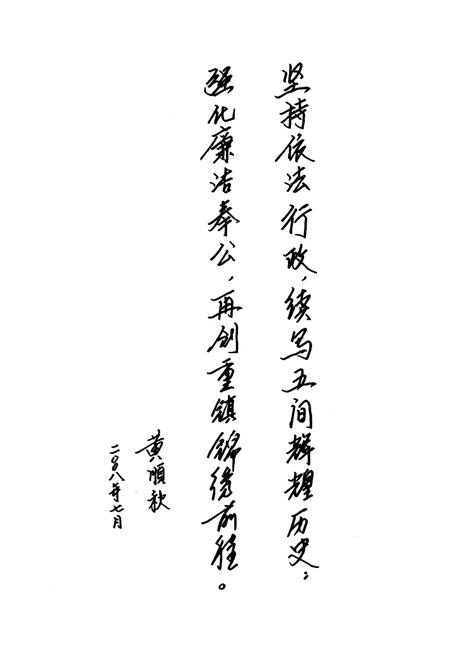 坚持依法行政，续写五间辉煌历史；
强化廉洁奉公，再创重镇锦绣前程。
黄顺秋
二〇〇八年七月